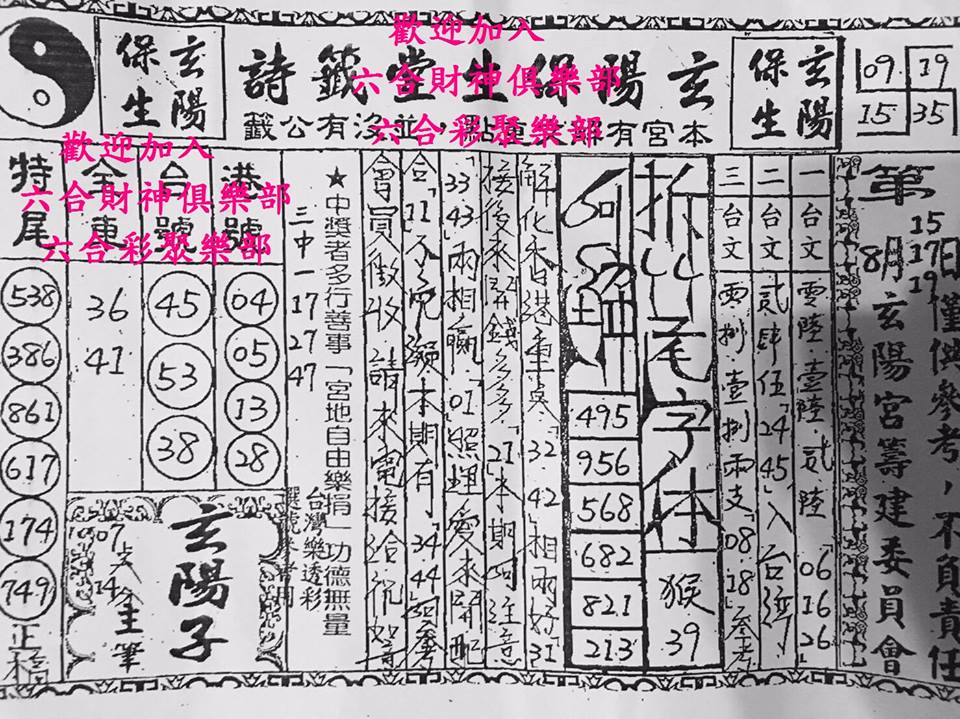 歡迎加入
六合財神俱樂部
六合彩聚樂部
玄陽保生堂籤詩
玄陽
保生
玄陽
保生
09 19
15 35
第
15
8月17日僅供參考,不負責任
19
玄陽宮籌建委員會
一台文 零陸壹陸貳陸「06 16 26
二台文 貳肆伍「24 45」入台
三台文 捌壹捌兩支「08 18參考
拆
尾字体
猴
39
495
956
568
682
821
213
解化香港重 「32 42相兩好31
接後來 錢多多「21本期 注意
33 43兩相贏「01照理愛來
合「11 本期有「34 44 參
會員徵收 請來電接洽
★中獎者多行善事「宮地自由樂捐」功德無量
三中一 17 27 47
台灣樂透彩
選號參考用
港號
04
05
13
28
台號
45
53
38
全車
36
41
特尾
538
386
861
617
174
749
正
玄陽子
07 支 14
主筆
歡迎加入
六合財神俱樂部
六合彩聚樂部